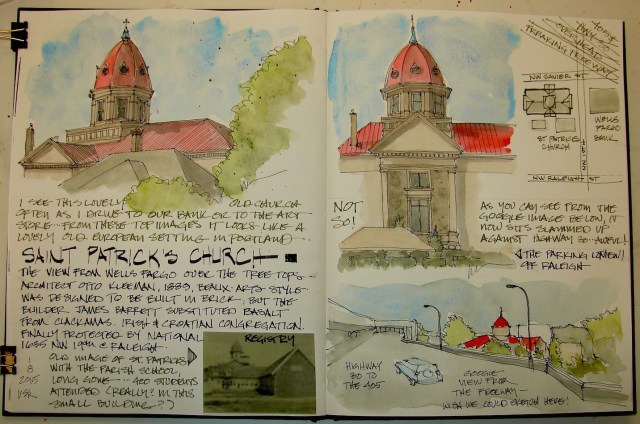 I SEE THIS LOVELY OLD CHURCH
OFTEN AS I DRIVE TO OUR BANK OR TO THE ART
STORE - FROM THESE TOP IMAGES IT LOOKS LIKE A
LOVELY OLD EUROPEAN SETTING IN PORTLAND
SAINT PATRICK'S CHURCH
THE VIEW FROM WELLS FARGO OVER THE TREE TOPS -
ARCHITECT OTTO KLEEMAN, 1889, BEAUX-ARTS STYLE -
WAS DESIGNED TO BE BUILT IN BRICK; BUT THE
BUILDER JAMES BARRETT SUBSTITUTED BASALT
FROM CLACKAMAS. IRISH & CROATIAN CONGREGATION.
FINALLY PROTECTED BY NATIONAL
REGISTRY
1635 NW 19TH & RALEIGH
1
8
2015
OLD IMAGE OF ST. PATRICKS
WITH THE PARISH SCHOOL,
LONG GONE - 400 STUDENTS
ATTENDED (REALLY? IN THIS
SMALL BUILDING?)
405 &
HWY 30
OVERHEAD
FREAKING FREEWAY
NW SAVIER ST
ST PATRICKS
CHURCH
WELLS
FARGO
BANK
NW RALEIGH ST
NOT
SO!
AS YOU CAN SEE FROM THE
GOOGLE IMAGE BELOW, IT
NOW SITS SLAMMED UP
AGAINST HIGHWAY 30 - AWFUL!
OFF RALEIGH
HIGHWAY
30 TO
THE 405
GOOGLE
VIEW FROM
THE FREEWAY -
WISH WE COULD SKETCH HERE!